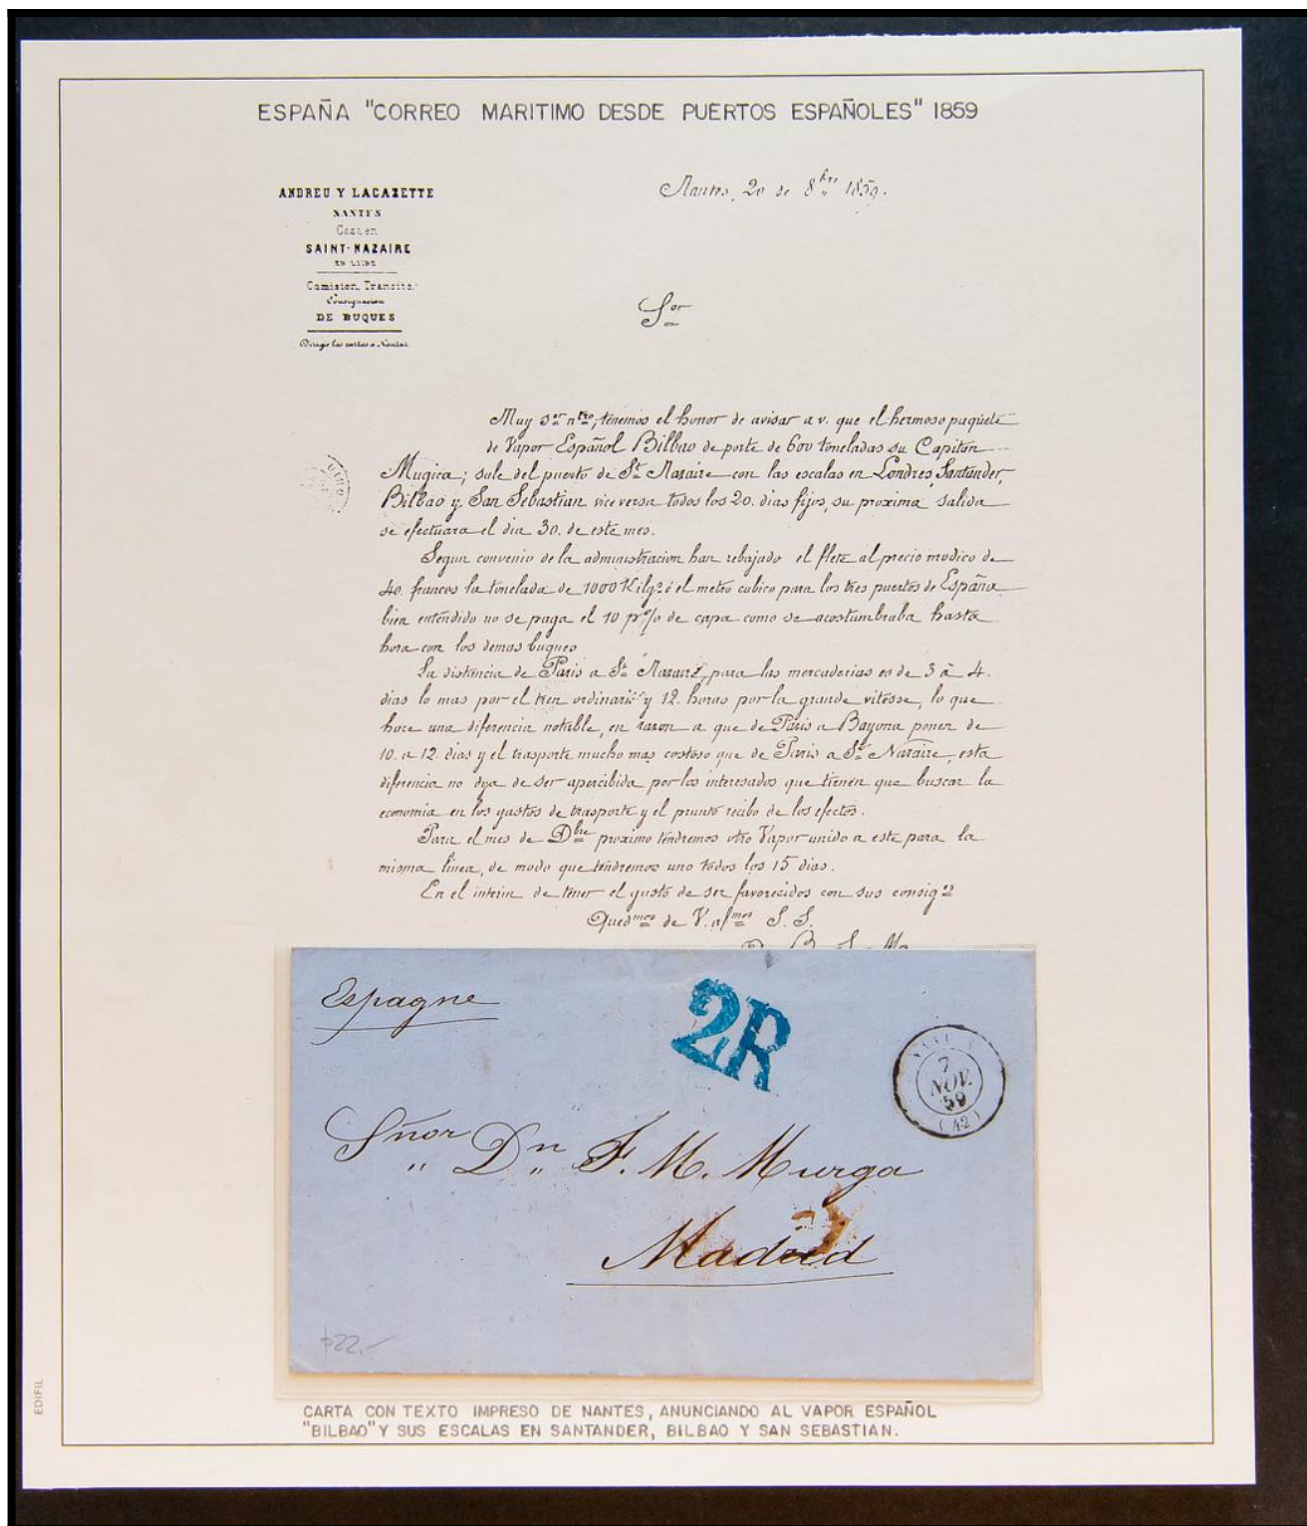 ESPAÑA "CORREO MARITIMO DESDE PUERTOS ESPAÑOLES" 1859
ANDREU Y LACAZETTE
NANTES
Casa en
SAINT-NAZAIRE
Comision Transito
Consignacion
DE BUQUES
Dirigir las cartas a Nantes
Nantes, 20 de 8bre 1859.
Sor
Muy Sor ntro; tenemos el honor de avisar a v. que el hermoso paquete
de Vapor Español Bilbao de porte de 600 toneladas su Capitan
Mugica; sale del puerto de St Nazaire con las escalas en Londres, Santander,
Bilbao y San Sebastian vice versa todos los 20. dias fijos, su proxima salida
se efectuara el dia 30. de este mes.
Segun convenio de la administracion han rebajado el flete al precio modico de
40. francos la tonelada de 1000 Kilgs ó el metro cubico para los tres puertos de España
bien entendido no se paga el 10 p% de capa como se acostumbraba hasta
hora con los demas buques
La distancia de Paris a St Nazaire, para las mercaderias es de 3 à 4.
dias lo mas por el tren ordinario y 12. horas por la grande vitesse, lo que
hace una diferencia notable, en razon a que de Paris a Bayona ponen de
10. a 12. dias y el trasporte mucho mas costoso que de Paris a St Nazaire, esta
diferencia no dya de ser apercibida por los interesados que tienen que buscar la
economia en los gastos de trasporte y el pronto recibo de los efectos.
Para el mes de Dbre proximo tendremos otro Vapor unido a este para la
misma linea, de modo que tendremos uno todos los 15 dias.
En el interin de tener el gusto de ser favorecidos con sus consigs
Quedmos de V. afmos S. S.
Espagne
2R
7
NOV.
59
(42)
Sñor Dn F. M. Murga
Madrid
p22,-
EDIFIL
CARTA CON TEXTO IMPRESO DE NANTES, ANUNCIANDO AL VAPOR ESPAÑOL
"BILBAO" Y SUS ESCALAS EN SANTANDER, BILBAO Y SAN SEBASTIAN.